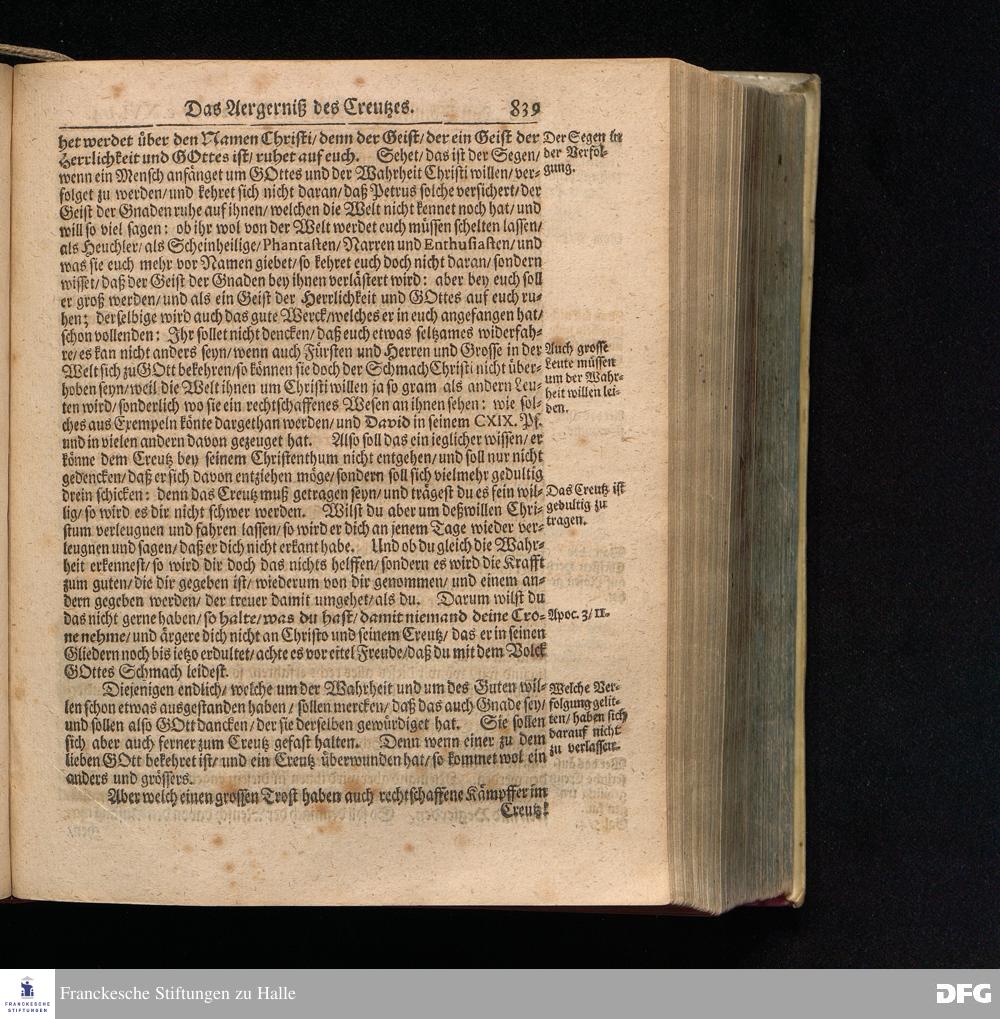 Das Aergerniß des Creutzes. 839
het werdet über den Namen Christi/ denn der Geist/ der ein Geist der
Herrlichkeit und GOttes ist/ ruhet auf euch. Sehet/ das ist der Segen/
wenn ein Mensch anfänget um GOttes und der Wahrheit Christi willen/ ver-
folget zu werden/ und kehret sich nicht daran/ daß Petrus solche versichert/ der
Geist der Gnaden ruhe auf ihnen/ welchen die Welt nicht kennet noch hat/ und
will so viel sagen: ob ihr wol von der Welt werdet euch müssen schelten lassen/
als Heuchler/ als Scheinheilige/ Phantasten/ Narren und Enthusiasten/ und
was sie euch mehr vor Namen giebet/ so kehret euch doch nicht daran/ sondern
wisset/ daß der Geist der Gnaden bey ihnen verlästert wird: aber bey euch soll
er groß werden/ und als ein Geist der Herrlichkeit und GOttes auf euch ru-
hen; derselbige wird auch das gute Werck/ welches er in euch angefangen hat/
schon vollenden: Ihr sollet nicht dencken/ daß euch etwas seltzames widerfah-
re/ es kan nicht anders seyn/ wenn auch Fürsten und Herren und Grosse in der
Welt sich zu GOtt bekehren/ so können sie doch der Schmach Christi nicht über-
hoben seyn/ weil die Welt ihnen um Christi willen ja so gram als andern Leu-
ten wird/ sonderlich wo sie ein rechtschaffenes Wesen an ihnen sehen: wie sol-
ches aus Exempeln könte dargethan werden/ und David in seinem CXIX. Ps.
und in vielen andern davon gezeuget hat. Also soll das ein ieglicher wissen/ er
könne dem Creutz bey seinem Christenthum nicht entgehen/ und soll nur nicht
gedencken/ daß er sich davon entziehen möge/ sondern soll sich vielmehr gedultig
drein schicken: denn das Creutz muß getragen seyn/ und trägest du es fein wil-
lig/ so wird es dir nicht schwer werden. Wilst du aber um deßwillen Chri-
stum verleugnen und fahren lassen/ so wird er dich an jenem Tage wieder ver-
leugnen und sagen/ daß er dich nicht erkant habe. Und ob du gleich die Wahr-
heit erkennest/ so wird dir doch das nichts helffen/ sondern es wird die Krafft
zum guten/ die dir gegeben ist/ wiederum von dir genommen/ und einem an-
dern gegeben werden/ der treuer damit umgehet/ als du. Darum wilst du
das nicht gerne haben/ so halte/ was du hast/ damit niemand deine Cro-
ne nehme/ und ärgere dich nicht an Christo und seinem Creutz/ das er in seinen
Gliedern noch bis ietzo erdultet/ achte es vor eitel Freude/ daß du mit dem Volck
GOttes Schmach leidest.
Diejenigen endlich/ welche um der Wahrheit und um des Guten wil-
len schon etwas ausgestanden haben/ sollen mercken/ daß das auch Gnade sey/
und sollen also GOtt dancken/ der sie derselben gewürdiget hat. Sie sollen
sich aber auch ferner zum Creutz gefast halten. Denn wenn einer zu dem
lieben GOtt bekehret ist/ und ein Creutz überwunden hat/ so kommet wol ein
anders und grössers.
Aber welch einen grossen Trost haben auch rechtschaffene Kämpffer im
Creutz!
Der Segen in
der Verfol-
gung.
Auch grosse
Leute müssen
um der Wahr-
heit willen lei-
den.
Das Creutz ist
gedultig zu
tragen.
Apoc. 3/ 11.
Welche Ver-
folgung gelit-
ten/ haben sich
darauf nicht
zu verlassen.
FRANCKESCHE
STIFTUNGEN
Franckesche Stiftungen zu Halle
DFG